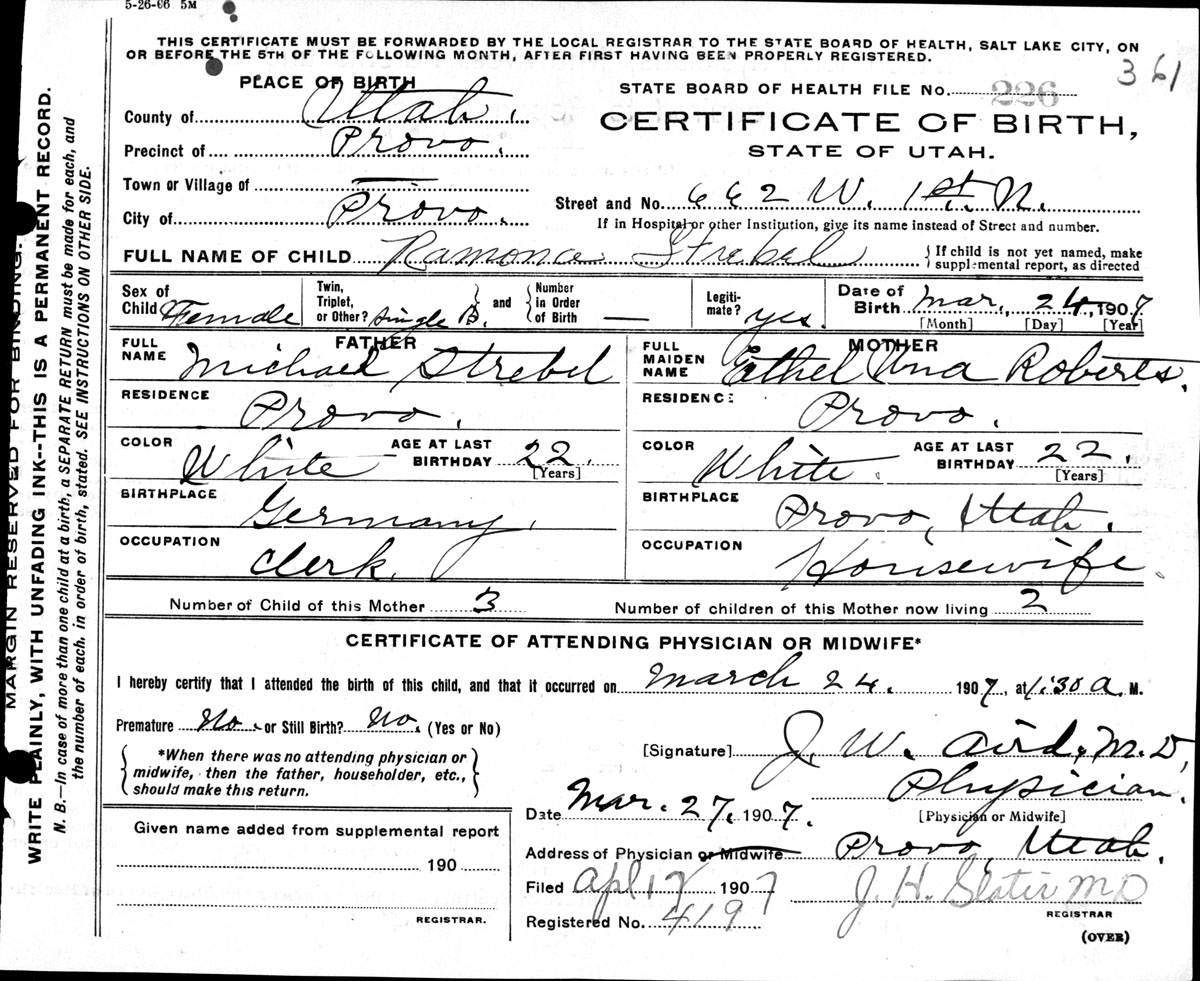 5-26-06 5M
THIS CERTIFICATE MUST BE FORWARDED BY THE LOCAL REGISTRAR TO THE STATE BOARD OF HEALTH, SALT LAKE CITY, ON
OR BEFORE THE 5TH OF THE FOLLOWING MONTH, AFTER FIRST HAVING BEEN PROPERLY REGISTERED.
361
PLACE OF BIRTH
STATE BOARD OF HEALTH FILE No. 226
County of Utah.
CERTIFICATE OF BIRTH,
Precinct of Provo.
STATE OF UTAH.
Town or Village of
Street and No. 662 W. 1st. N.
City of Provo.
If in Hospital or other Institution, give its name instead of Street and number.
FULL NAME OF CHILD Ramona Strebel
{ If child is not yet named, make
supplemental report, as directed
Sex of
Child Female
Twin,
Triplet,
or Other? Single B.
} and {
Number
in Order
of Birth —
Legiti-
mate? yes.
Date of
Birth Mar. 24, 1907
[Month] [Day] [Year]
FATHER
FULL
NAME Michael Strebel
RESIDENCE Provo.
COLOR White
AGE AT LAST
BIRTHDAY 22.
[Years]
BIRTHPLACE Germany.
OCCUPATION Clerk.
MOTHER
FULL
MAIDEN
NAME Ethel Ana Roberts.
RESIDENCE Provo.
COLOR White.
AGE AT LAST
BIRTHDAY 22.
[Years]
BIRTHPLACE Provo, Utah.
OCCUPATION Housewife.
Number of Child of this Mother 3
Number of children of this Mother now living 2
CERTIFICATE OF ATTENDING PHYSICIAN OR MIDWIFE*
I hereby certify that I attended the birth of this child, and that it occurred on March 24. 1907, at 1:30 A. M.
Premature No. or Still Birth? No. (Yes or No)
{ *When there was no attending physician or
midwife, then the father, householder, etc.,
should make this return. }
[Signature] J. W. Aird, M.D,
Physician.
[Physician or Midwife]
Date Mar. 27, 1907.
Address of Physician or Midwife Provo, Utah.
Given name added from supplemental report
190
REGISTRAR.
Filed Apl 17 1907
J. H. Slater MD
REGISTRAR
Registered No. 419
(OVER)
MARGIN RESERVED FOR BINDING.
WRITE PLAINLY, WITH UNFADING INK--THIS IS A PERMANENT RECORD.
N. B.—In case of more than one child at a birth, a SEPARATE RETURN must be made for each, and
the number of each, in order of birth, stated. SEE INSTRUCTIONS ON OTHER SIDE.